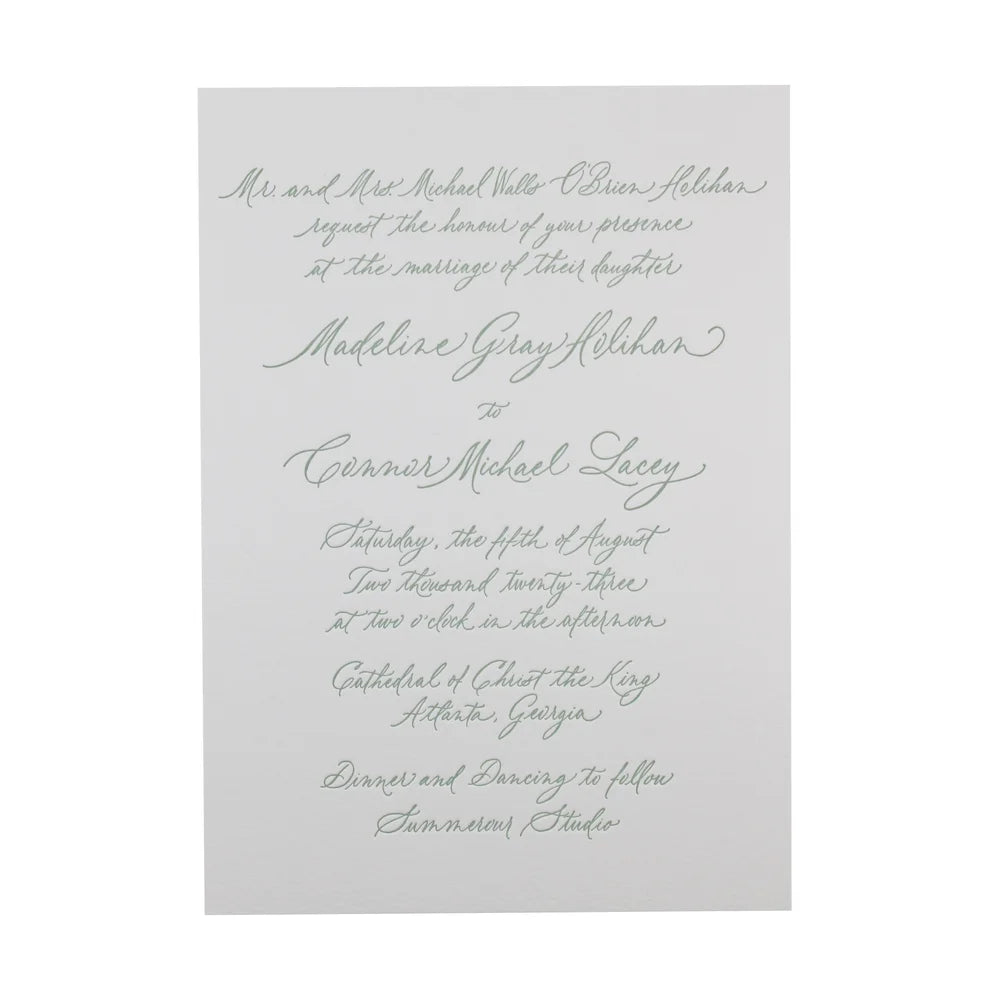 Mr. and Mrs. Michael Walls O'Brien Holihan
request the honour of your presence
at the marriage of their daughter
Madeline Gray Holihan
to
Connor Michael Lacey
Saturday, the fifth of August
Two thousand twenty-three
at two o'clock in the afternoon
Cathedral of Christ the King
Atlanta, Georgia
Dinner and Dancing to follow
Summerour Studio